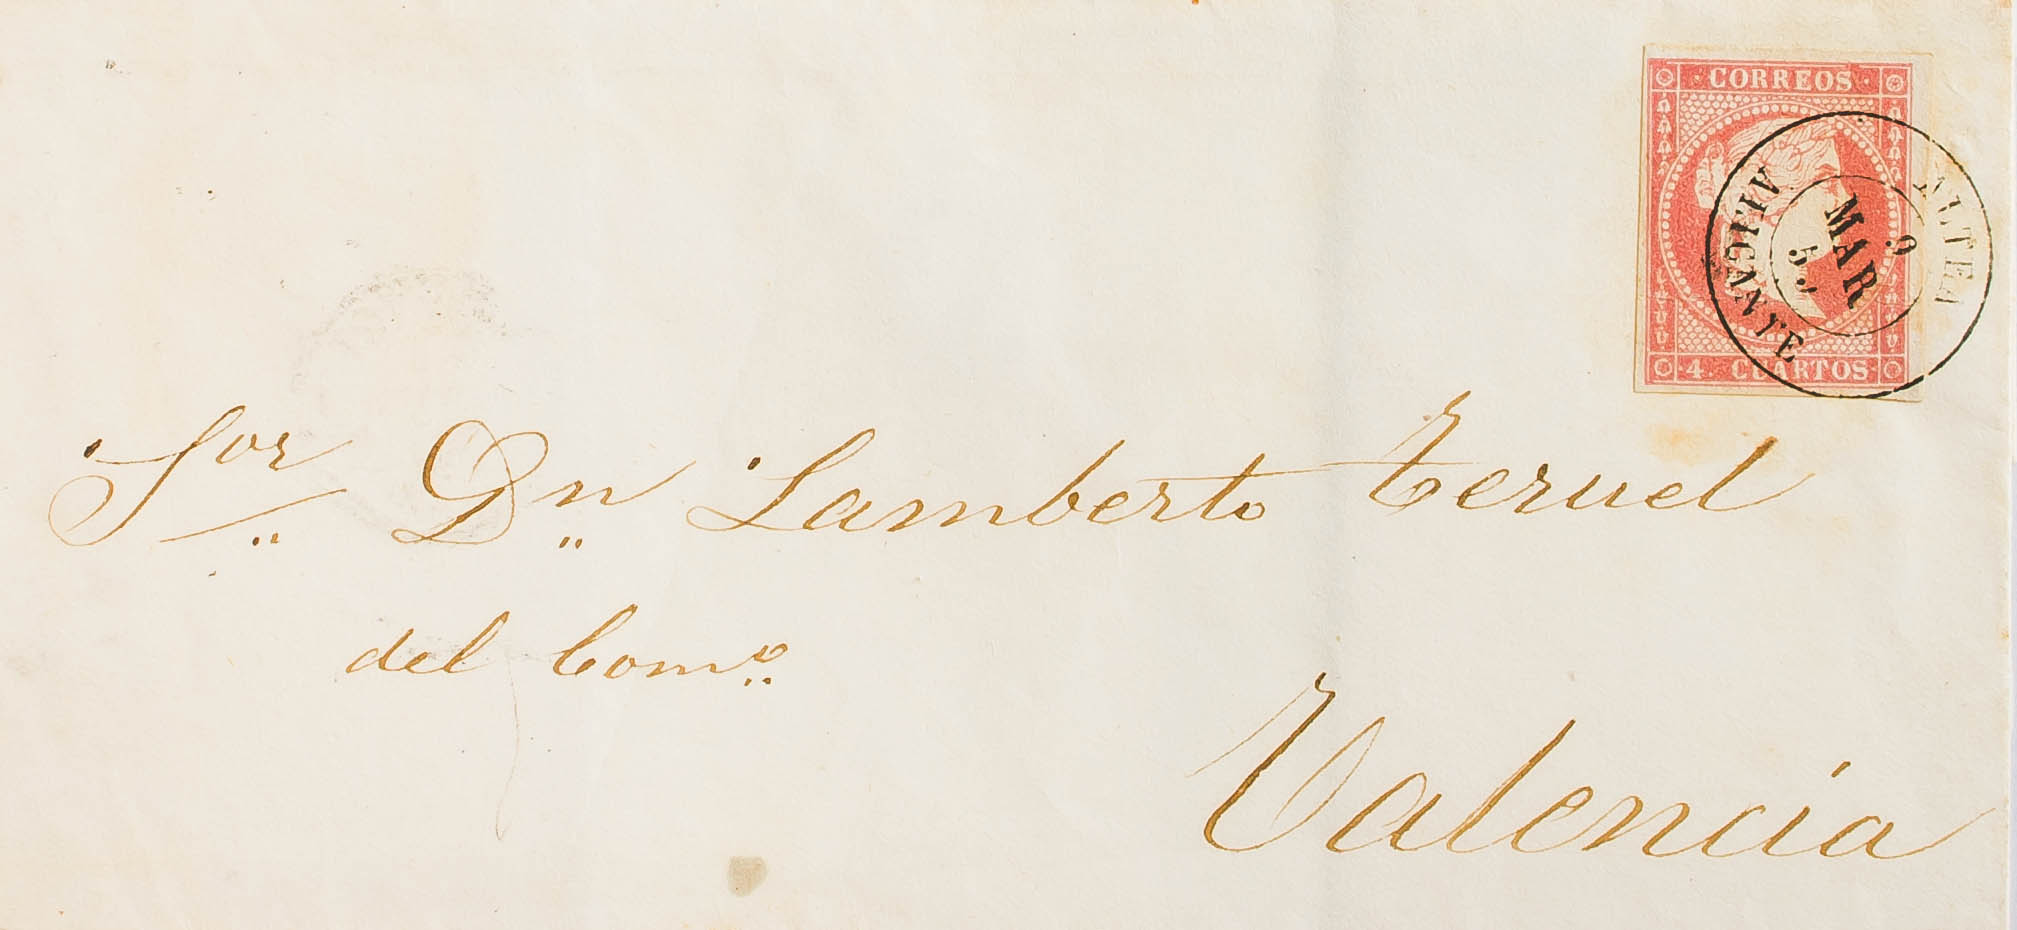 CORREOS
ALTEA
9
MAR
ALICANTE
4 CUARTOS
Sor Dn Lamberto Teruel
del Como
Valencia